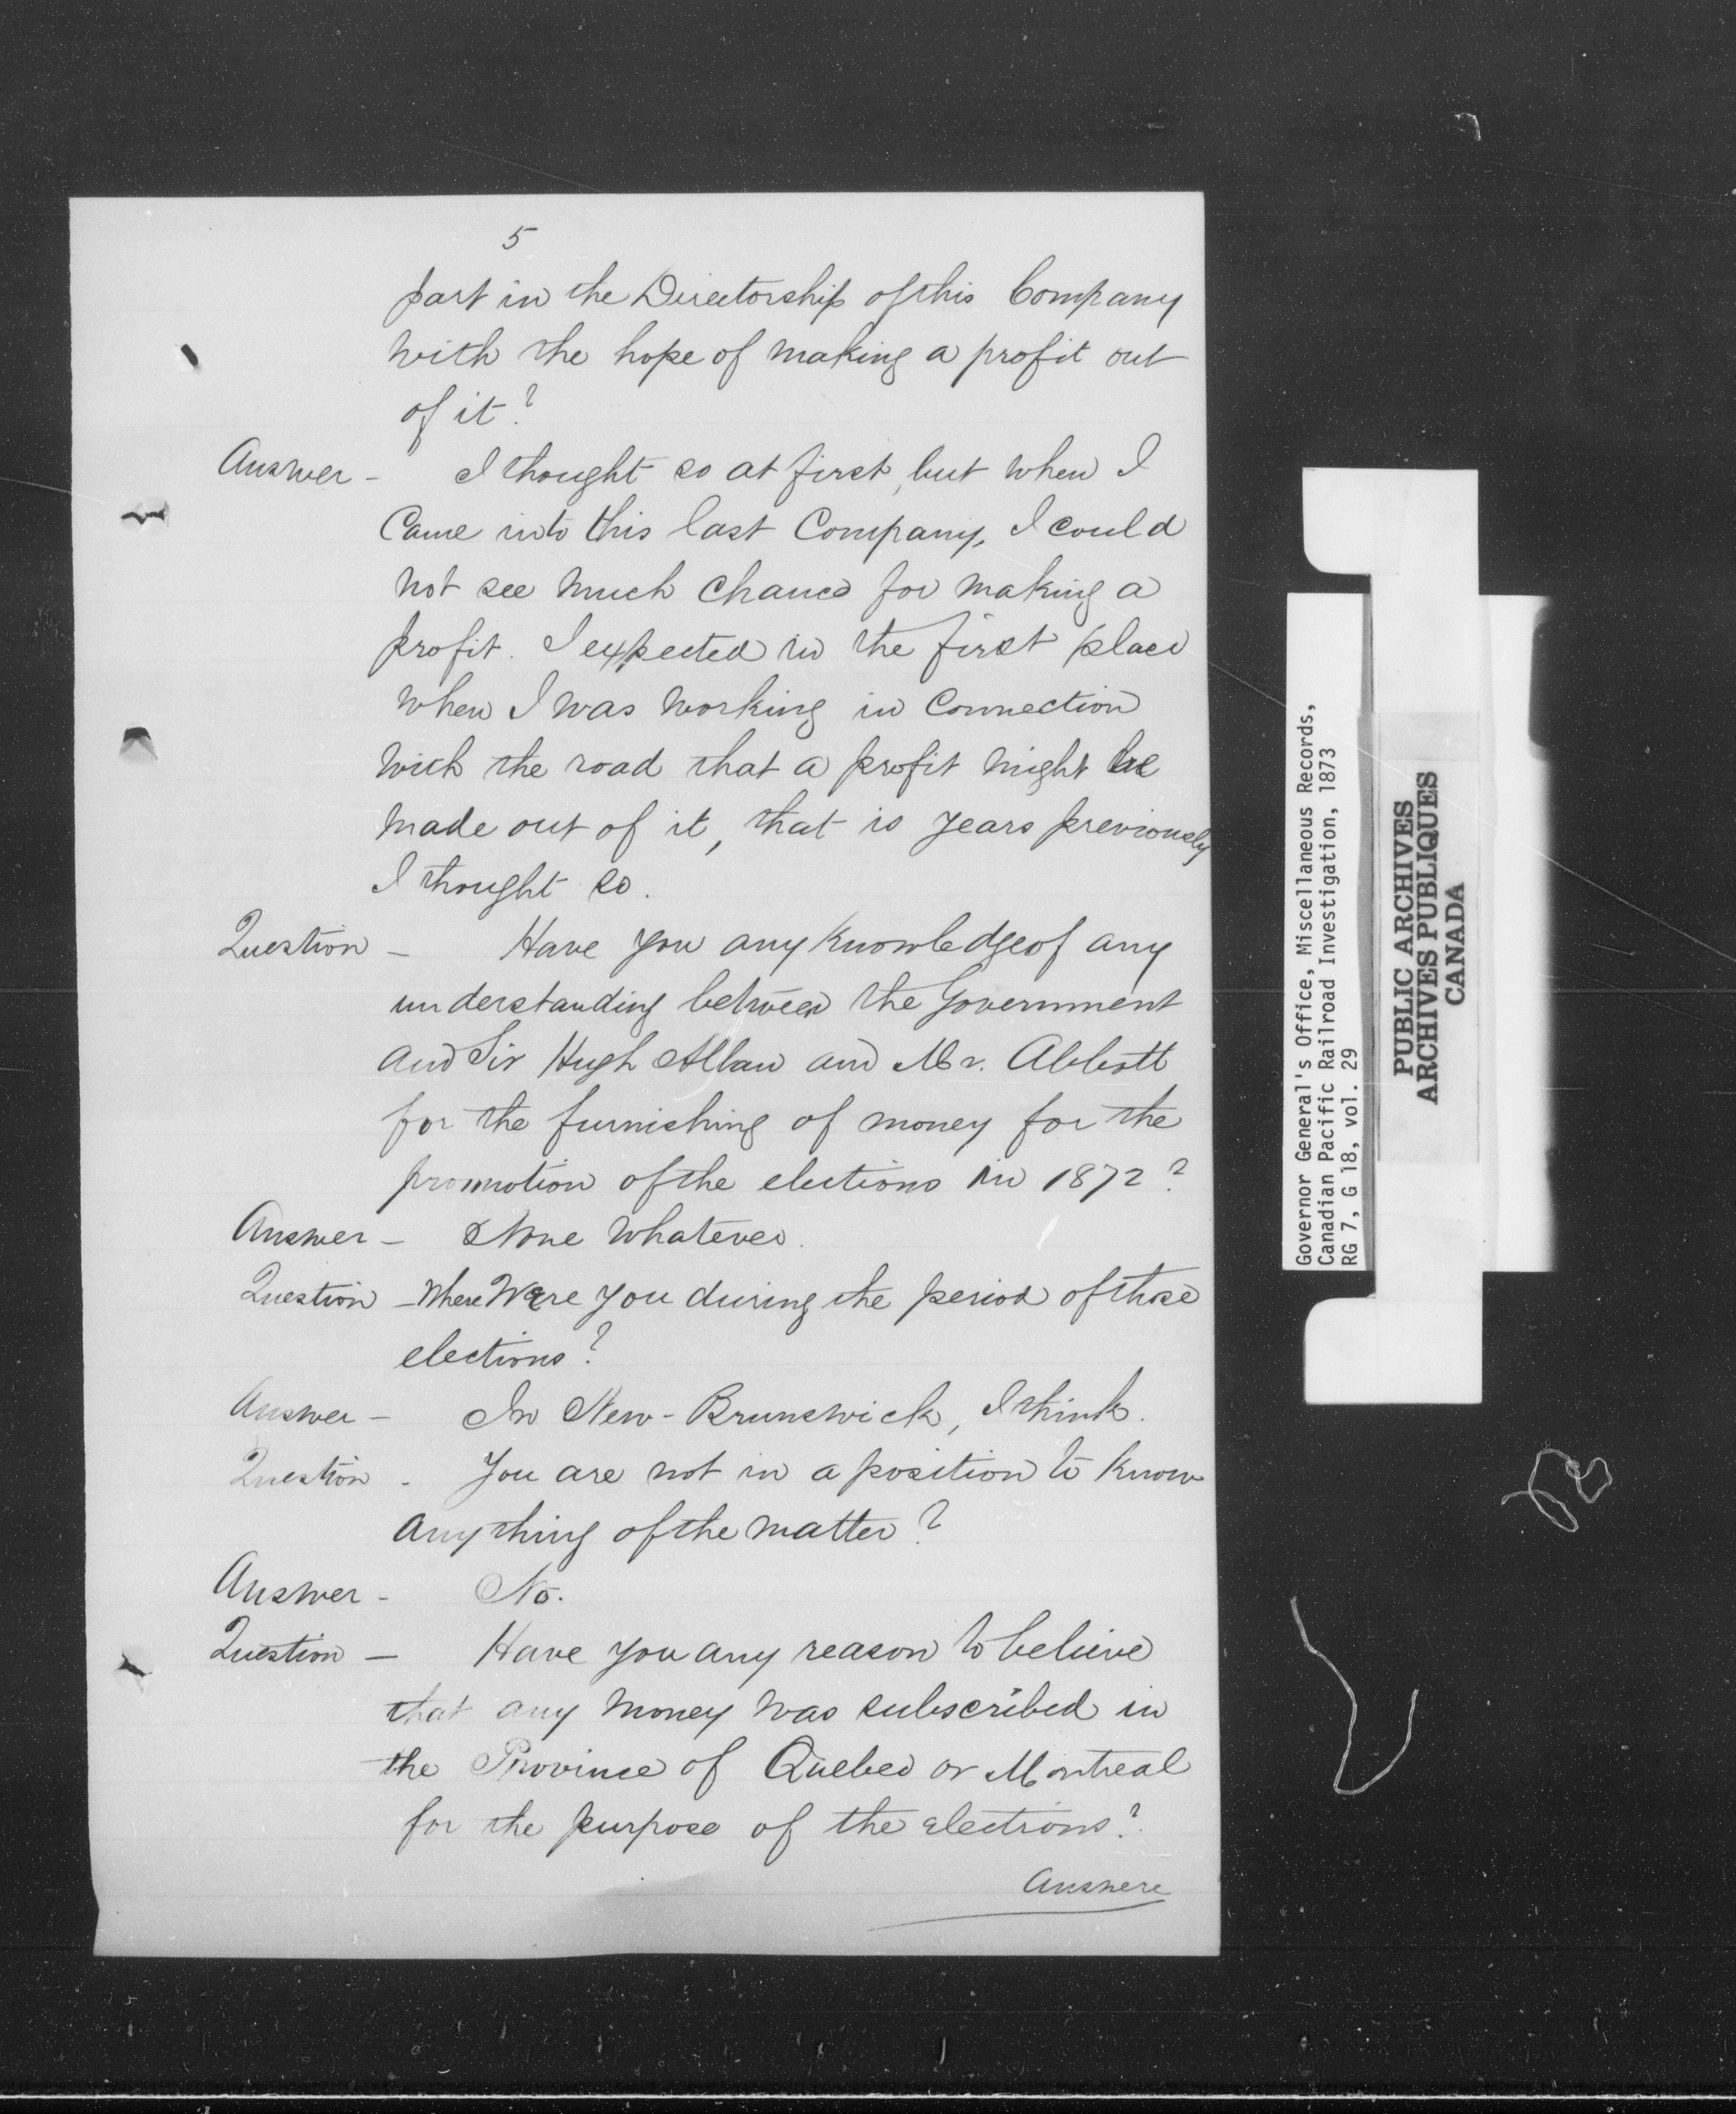 5
part in the Directorship of this Company
with the hope of making a profit out
of it?
Answer - I thought so at first, but when I
Came into this last Company, I could
not see much chance for making a
profit. I expected in the first place
when I was working in connection
with the road that a profit might be
made out of it, that is years previously
I thought so.
Question - Have you any knowledge of any
understanding between the Government
and Sir Hugh Allan and Mr. Abbott
for the furnishing of money for the
promotion of the elections in 1872?
Answer - None whatever.
Question - Where Were you during the period of those
elections?
Answer - In New-Brunswick, I think.
Question - You are not in a position to know
anything of the matter?
Answer - No.
Question - Have you any reason to believe
that any money was subscribed in
the Province of Quebec or Montreal
for the purpose of the elections?
Answere
Governor General's Office, Miscellaneous Records,
Canadian Pacific Railroad Investigation, 1873
RG 7, G 18, vol. 29
PUBLIC ARCHIVES
ARCHIVES PUBLIQUES
CANADA